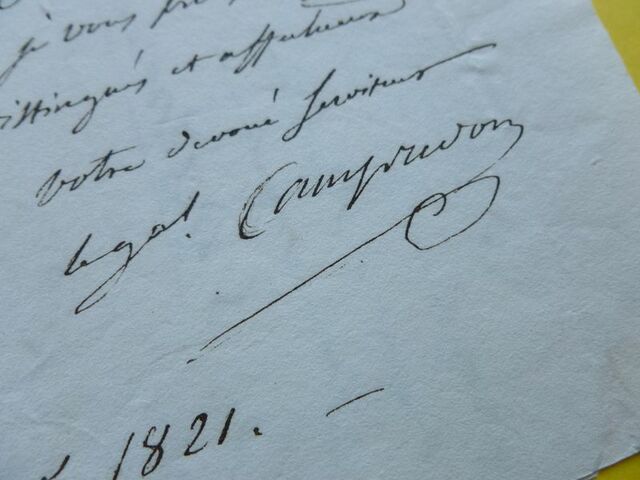 je vous
distingués et affectueux
votre devoué serviteur
le gal. Campredon
1821. —